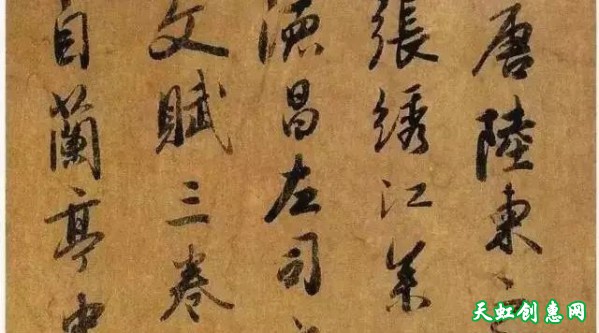 唐陸柬之
張綉江
德昌左司
文賦三卷
自蘭亭中
天虹创惠网